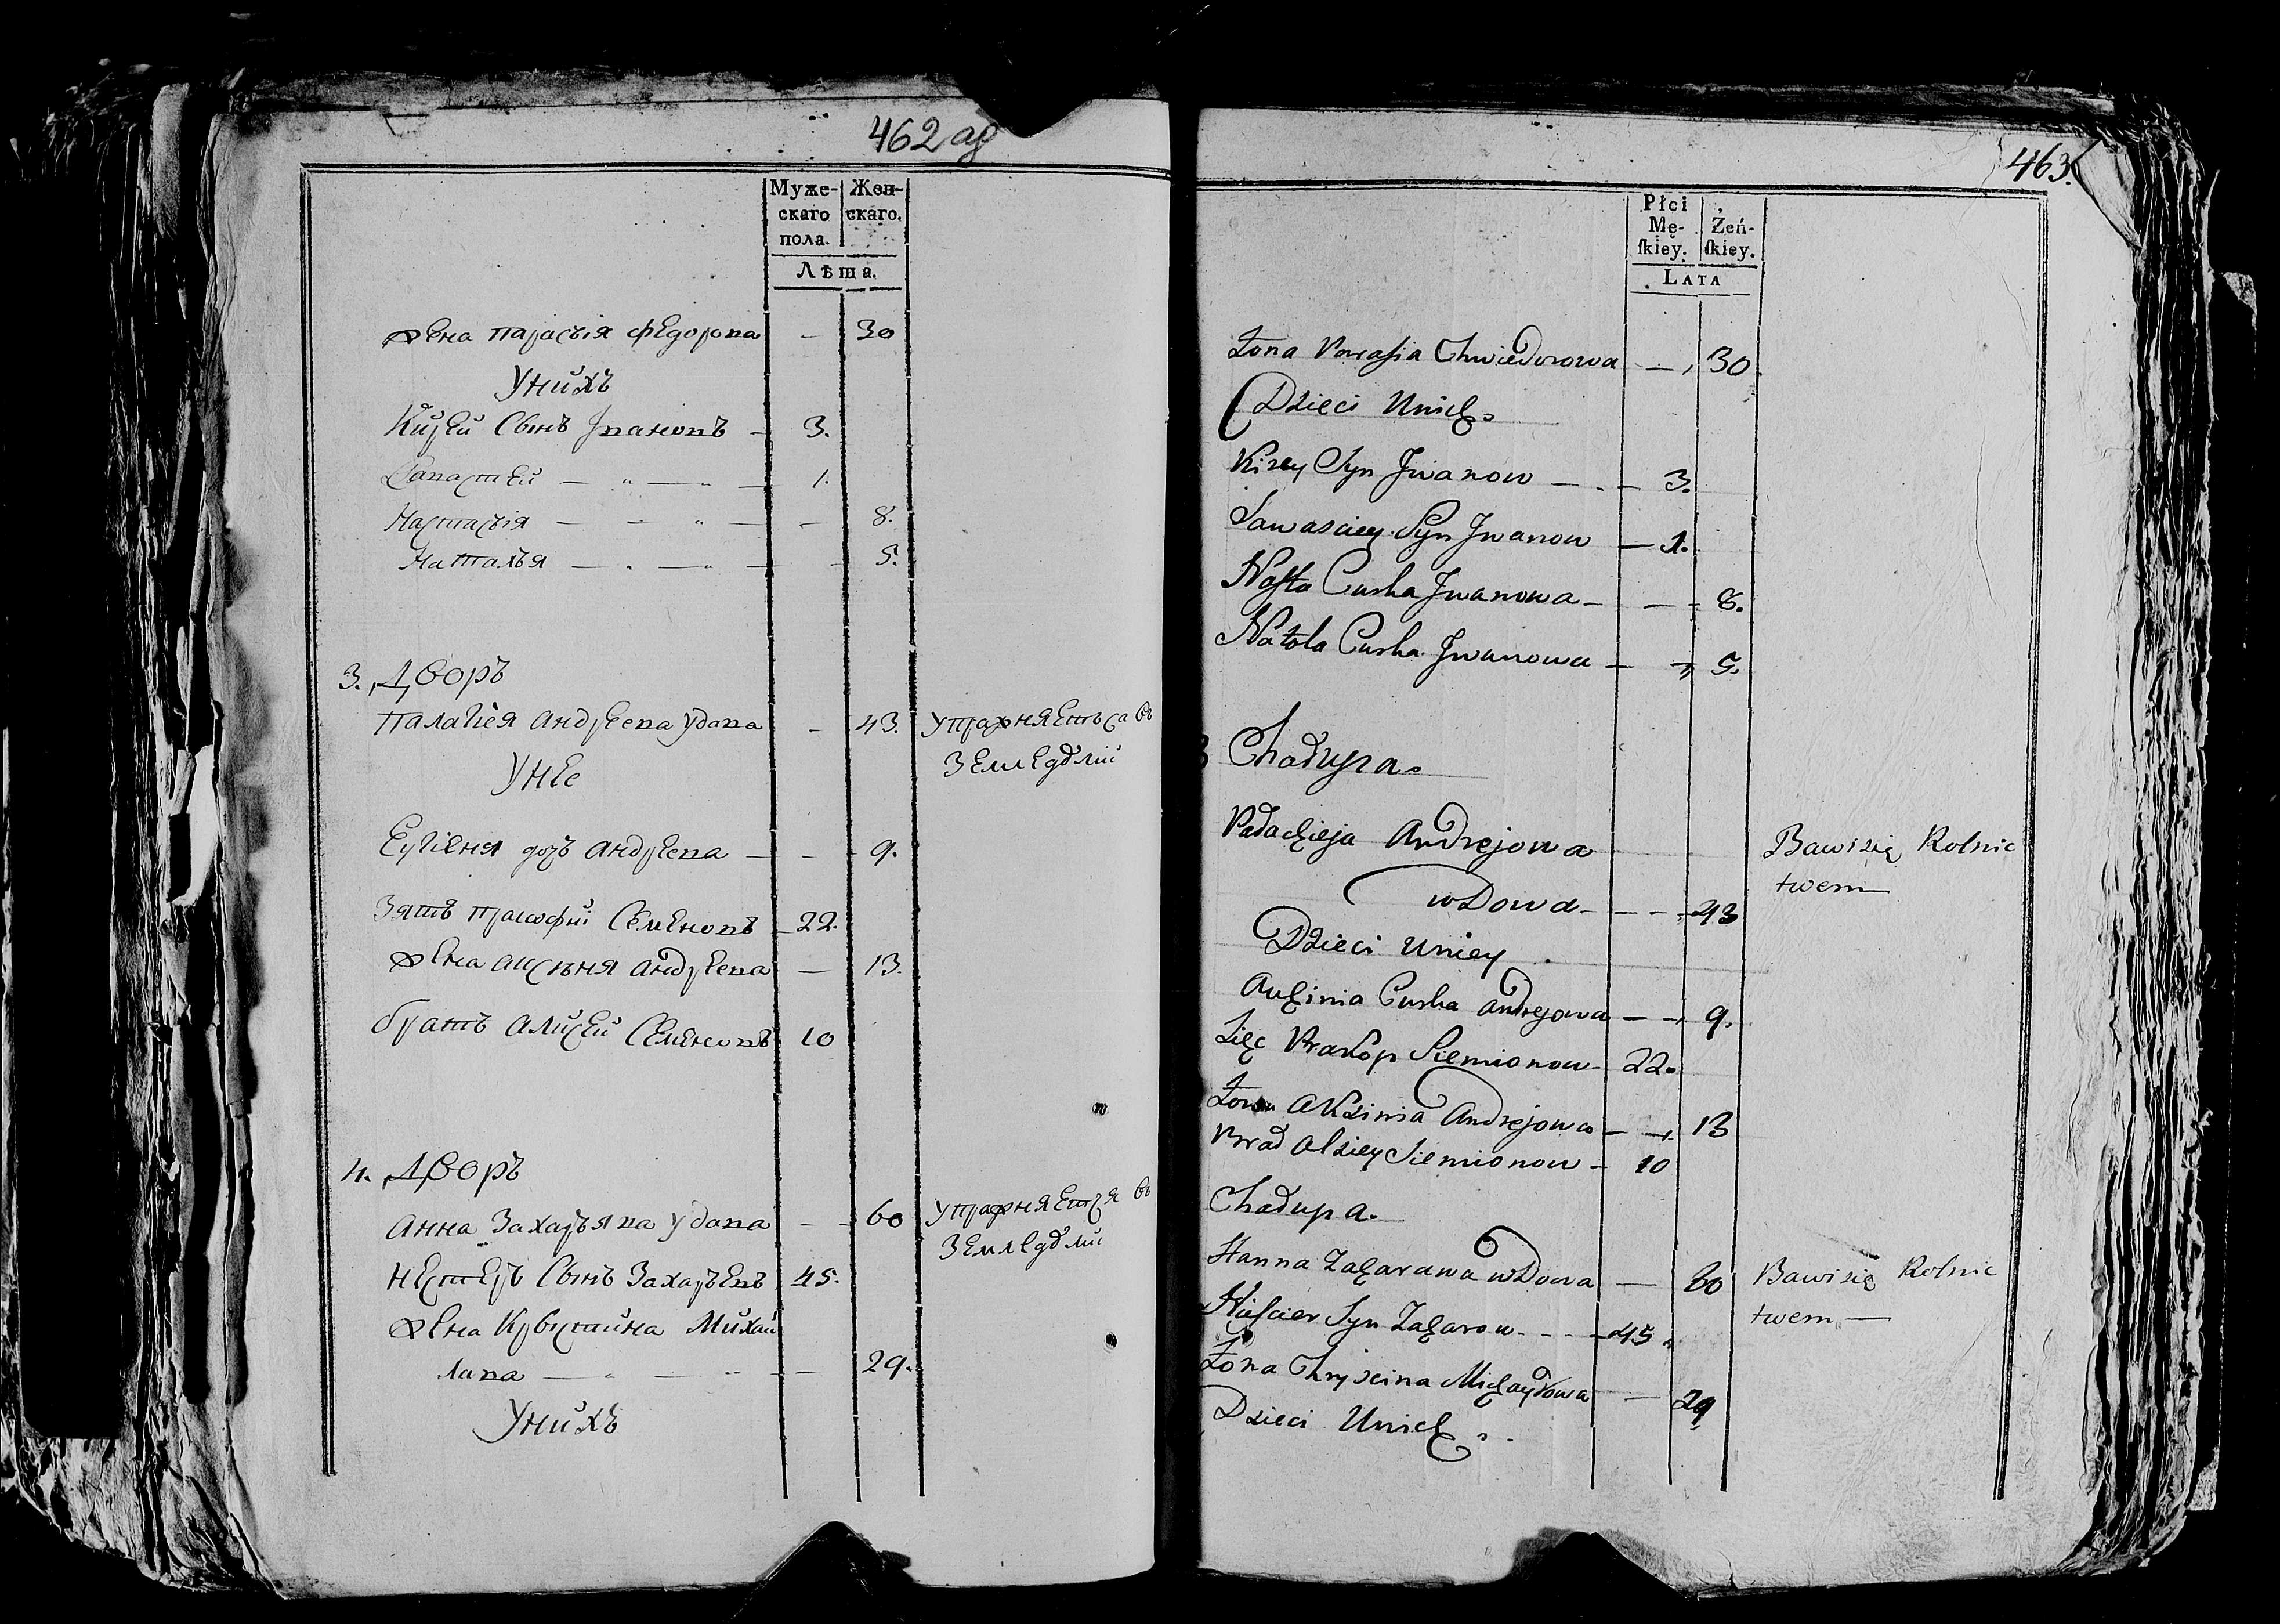 462 об
Муже- Жен-
скаго скаго.
пола.
Лѣта.
жена парасъія федорова — 30
У нихъ
Кирей Сынъ Ивановъ — 3.
Савастей — „ — „ — 1.
Настасъія — — „ — — 8.
Наталъя — . — „ — 5.
3. Дворъ
палагѣя андреева удова — 43. упражняетъса въ
земледѣлій
У нее
Еугіеня дочъ андреева — — 9.
Зять пракофій Семеновъ — 22.
жена аксиня андреева — 13.
братъ алисей Семеновъ 10
4. Дворъ
анна Захаръява удова — — 60 упражняется въ
земледѣлій
Нестеръ Сынъ Захаръевъ 45.
жена Крыстина Михай
лава — „ — „ — — 29.
У нихъ
463.
Płci Żeń-
Mę- skiey.
skiey.
LATA
Żona Parasia Chwiedorowa — , 30
Dzieci Unich.
Kirey Syn Jwanow — . — 3.
Sawasciey Syn Jwanow — 1.
Nasta Curka Jwanowa — — 8.
Natola Curka Jwanowa — — 5.
3 Chałupa.
Pałachieja Andrejowa Bawi się Rolnic
twem —
wdowa — — — 43
Dzieci Uniey
Auhinia Curka Andrejowa — — 9.
Zięc Prakop Siemionow — 22.
Żona Aksinia Andrejowa — — 13
Brad Alziey Siemionow — 10
Chałupa.
Hanna Zacharawa wdowa — 60 Bawi się Rolnic
twem —
Niescier Syn Zacharow — - — 45
Żona Chryscina Michayłowa — 29
Dzieci Unich.